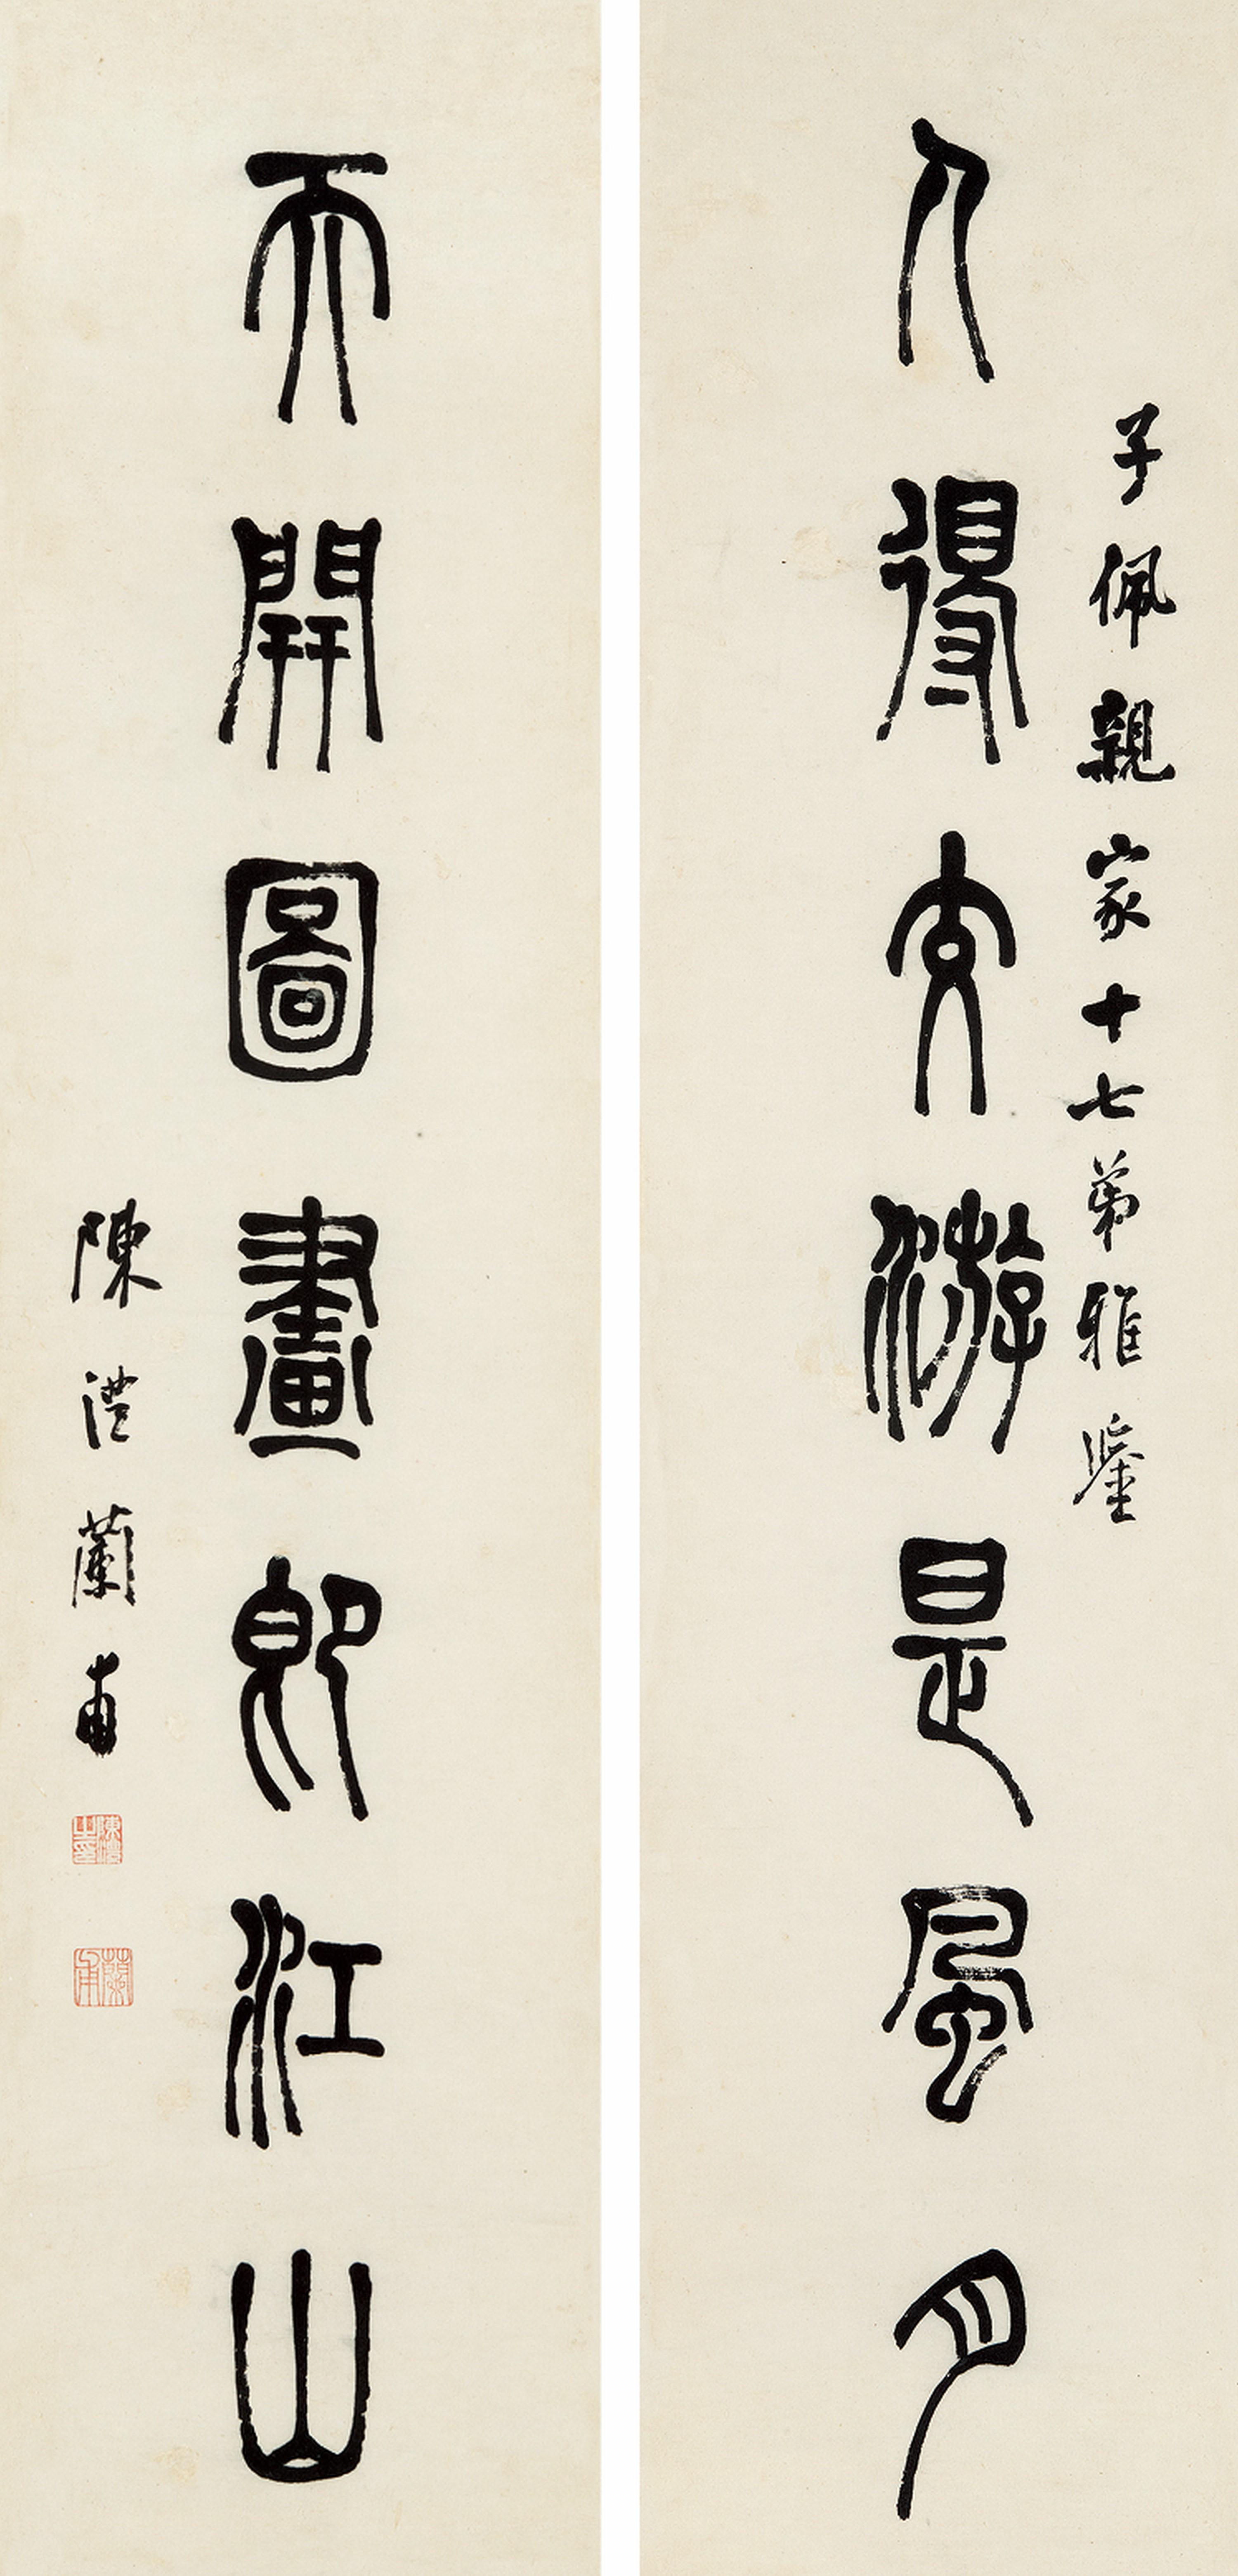 子佩親家十七弟雅鑒
人得交游是風月
天開圖畫即江山
陳澧蘭甫
陳澧之印
蘭甫